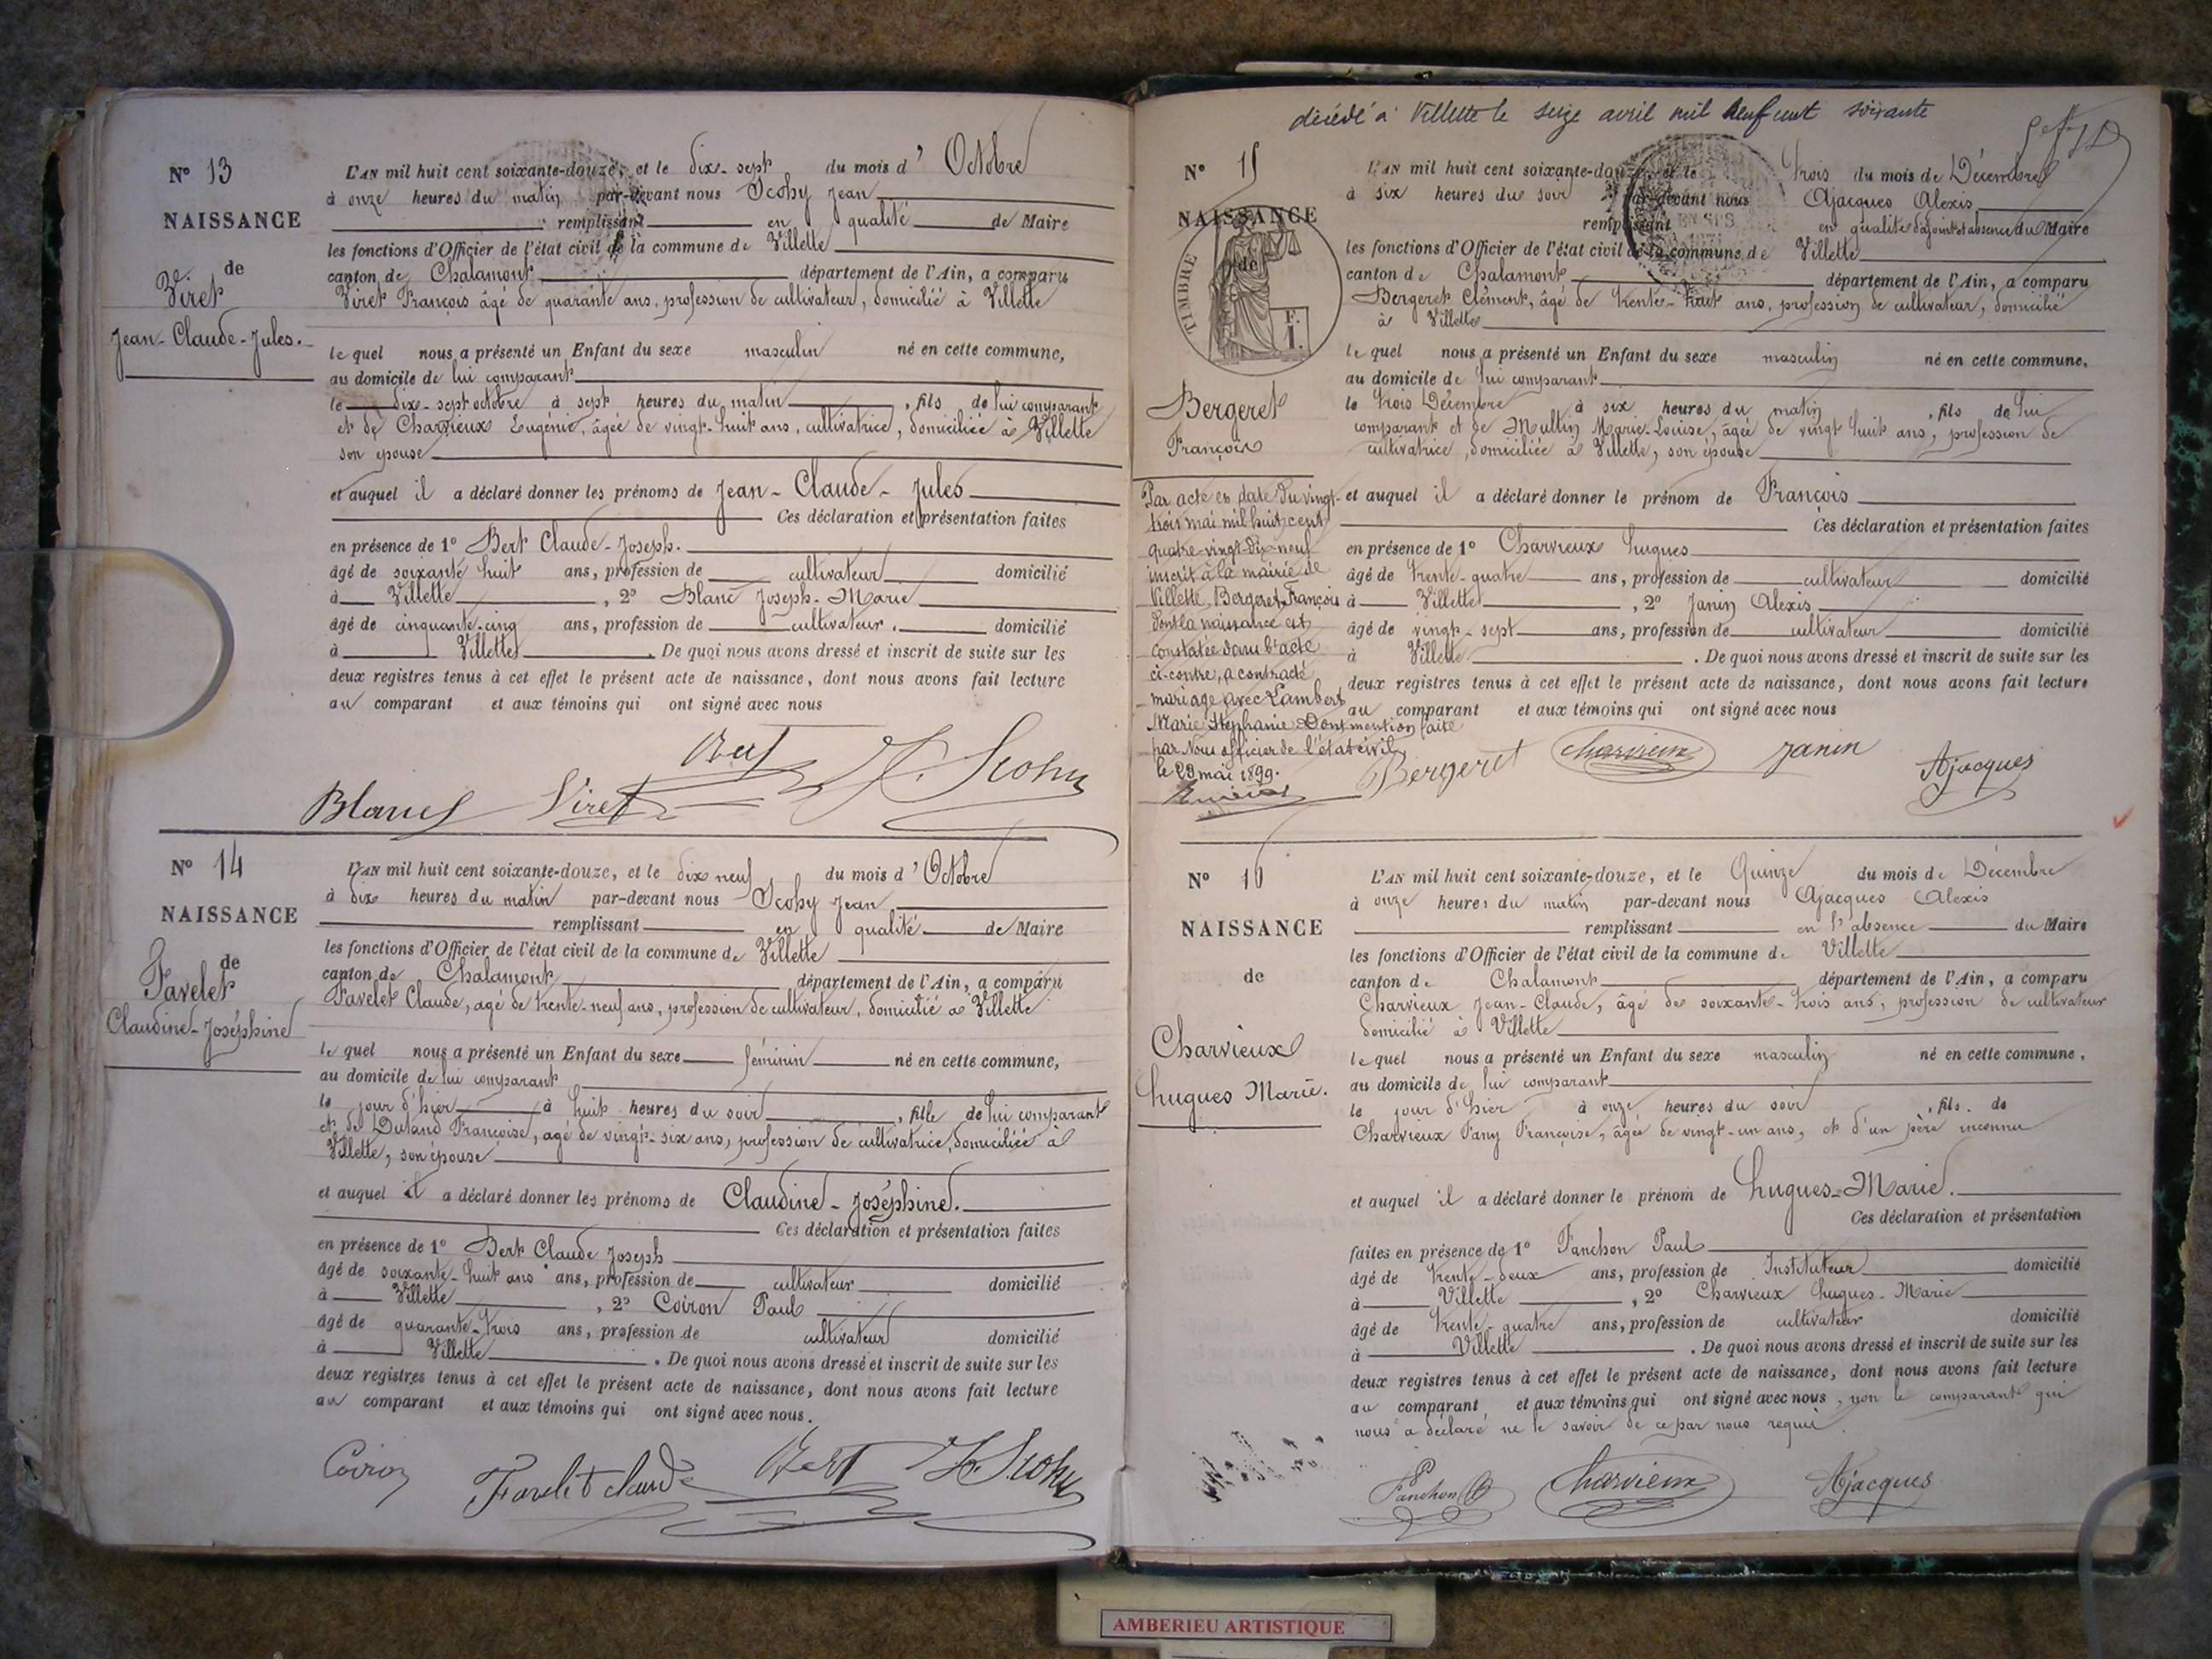 Nº 13
NAISSANCE
de
Viret
Jean-Claude-Jules.
L'AN mil huit cent soixante-douze, et le dix-sept du mois d' Octobre
à onze heures du matin par-devant nous Scohy Jean
remplissant en qualité de Maire
les fonctions d'Officier de l'état civil de la commune de Villette
canton de Chalamont département de l'Ain, a comparu
Viret François âgé de quarante ans, profession de cultivateur, domicilié à Villette
le quel nous a présenté un Enfant du sexe masculin né en cette commune,
au domicile de lui comparant
le dix-sept octobre à sept heures du matin, fils de lui comparant
et de Charvieux Eugénie, âgée de vingt-huit ans, cultivatrice, domiciliée à Villette
son épouse
et auquel il a déclaré donner les prénoms de Jean-Claude-Jules
Ces déclaration et présentation faites
en présence de 1º Bert Claude-Joseph.
âgé de soixante huit ans, profession de cultivateur domicilié
à Villette, 2º Blanc Joseph-Marie
âgé de cinquante-cinq ans, profession de cultivateur. domicilié
à Villette. De quoi nous avons dressé et inscrit de suite sur les
deux registres tenus à cet effet le présent acte de naissance, dont nous avons fait lecture
au comparant et aux témoins qui ont signé avec nous
Bert J. Scohy
Blanc Viret
Nº 14
NAISSANCE
de
Favelet
Claudine-Joséphine
L'AN mil huit cent soixante-douze, et le dix neuf du mois d' Octobre
à dix heures du matin par-devant nous Scohy Jean
remplissant en qualité de Maire
les fonctions d'Officier de l'état civil de la commune de Villette
canton de Chalamont département de l'Ain, a comparu
Favelet Claude, agé de trente-neuf ans, profession de cultivateur, domicilié à Villette
le quel nous a présenté un Enfant du sexe féminin né en cette commune,
au domicile de lui comparant
le jour d'hier à huit heures du soir, fille de lui comparant
et de Dutand Françoise, agé de vingt-six ans, profession de cultivatrice, domiciliée à
Villette, son épouse
et auquel il a déclaré donner les prénoms de Claudine-Joséphine.
Ces déclaration et présentation faites
en présence de 1º Bert Claude Joseph
âgé de soixante-huit ans ans, profession de cultivateur domicilié
à Villette, 2º Coiron Paul
âgé de quarante-trois ans, profession de cultivateur domicilié
à Villette. De quoi nous avons dressé et inscrit de suite sur les
deux registres tenus à cet effet le présent acte de naissance, dont nous avons fait lecture
au comparant et aux témoins qui ont signé avec nous.
Coiron Favelet claude Bert J. Scohy
décédé à Villette le seize avril mil neuf cent soixante
Nº 15
NAISSANCE
de
TIMBRE
F.
1.
Bergeret
François
L'AN mil huit cent soixante-douze, et le trois du mois de Décembre
à six heures du soir par-devant nous Ajacques Alexis
remplissant en qualité d'adjoint et absence du Maire
les fonctions d'Officier de l'état civil de la commune de Villette
canton de Chalamont département de l'Ain, a comparu
Bergeret Clément, âgé de trente-huit ans, profession de cultivateur, domicilié
à Villette
le quel nous a présenté un Enfant du sexe masculin né en cette commune.
au domicile de lui comparant
le trois Décembre à six heures du matin, fils de lui
comparant et de Multin Marie-Louise, âgée de vingt huit ans, profession de
cultivatrice, domiciliée à Villette, son épouse
et auquel il a déclaré donner le prénom de François
Ces déclaration et présentation faites
en présence de 1º Charvieux hugues
âgé de trente-quatre ans, profession de cultivateur domicilié
à Villette, 2º Janin Alexis
âgé de vingt-sept ans, profession de cultivateur domicilié
à Villette. De quoi nous avons dressé et inscrit de suite sur les
deux registres tenus à cet effet le présent acte de naissance, dont nous avons fait lecture
au comparant et aux témoins qui ont signé avec nous
Par acte en date du vingt-
trois mai mil huit cent
quatre-vingt-dix-neuf
inscrit à la mairie de
Villette, Bergeret François
dont la naissance est
constatée dans l'acte
ci-contre, a contracté
mariage avec Lambert
Marie Stéphanie Dont mention faite
par Nous officier de l'état civil,
le 29 mai 1899.
Bergeret Charvieux Janin Ajacques
Nº 16
NAISSANCE
de
Charvieux
hugues Marie.
L'AN mil huit cent soixante-douze, et le Quinze du mois de Décembre
à onze heures du matin par-devant nous Ajacques Alexis
remplissant en l'absence du Maire
les fonctions d'Officier de l'état civil de la commune de Villette
canton de Chalamont département de l'Ain, a comparu
Charvieux Jean-Claude, âgé de soixante-trois ans, profession de cultivateur
domicilié à Villette
le quel nous a présenté un Enfant du sexe masculin né en cette commune,
au domicile de lui comparant
le jour d'hier à onze heures du soir, fils. de
Charvieux Fany Françoise, âgée de vingt-un ans, et d'un père inconnu
et auquel il a déclaré donner le prénom de hugues-Marie.
Ces déclaration et présentation
faites en présence de 1º Fanchon Paul
âgé de trente-deux ans, profession de Instituteur domicilié
à Villette, 2º Charvieux hugues-Marie
âgé de trente-quatre ans, profession de cultivateur domicilié
à Villette. De quoi nous avons dressé et inscrit de suite sur les
deux registres tenus à cet effet le présent acte de naissance, dont nous avons fait lecture
au comparant et aux témoins qui ont signé avec nous, non le comparant qui
nous a déclaré ne le savoir de ce par nous requis.
P Fanchon Charvieux Ajacques
AMBERIEU ARTISTIQUE